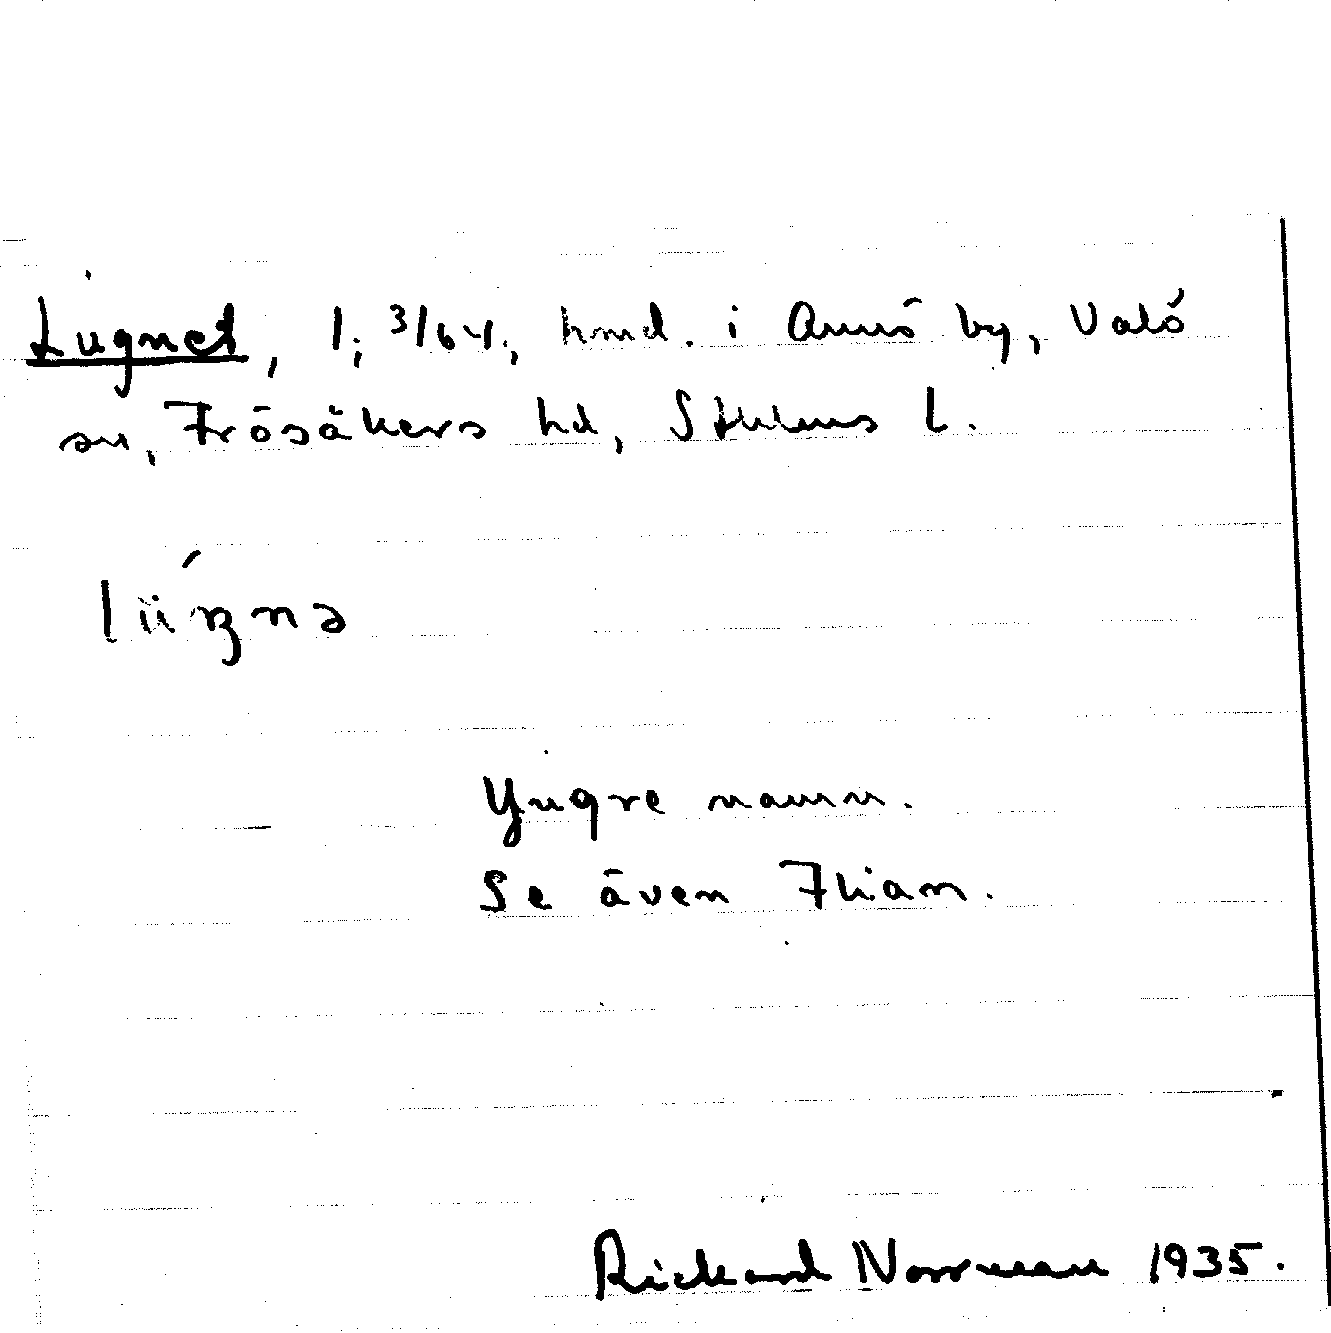 Lugnet, 1; 3/64, hmd. i Annö by, Valö
sn, Frösåkers hd, Sthlms l.
Yngre namn.
Se även Flian.
Rickard Norrman 1935.